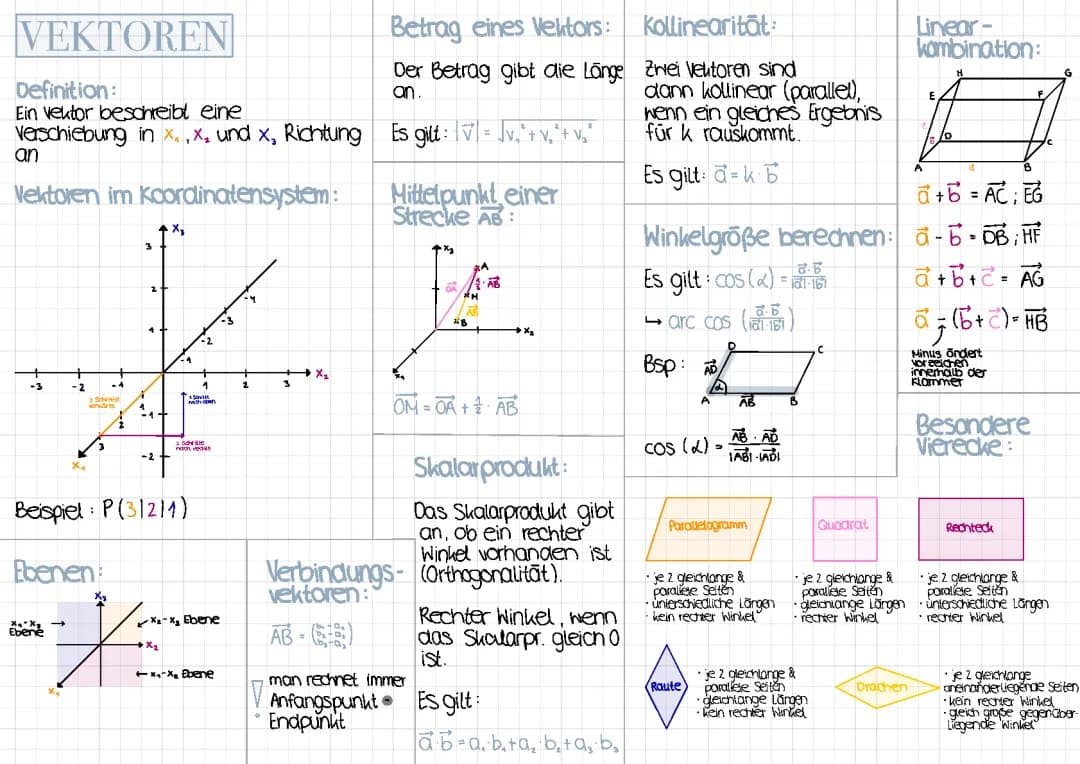 VEKTOREN
Definition:
Ein Vektor beschreibt eine
Verschiebung in x₁, x₂ und x₃ Richtung
an
Vektoren im Koordinatensystem:
x₃
3
2
1
-4
-3
-2
-1
-3 -2 -1 1 2 3 x₂
3 Schritte
vorwärts
1 Schritt
nach oben
1
2
3
-1
2 Schritte
nach rechts
-2
x₁
Beispiel: P(3|2|1)
Ebenen:
x₃
x₁-x₃
Ebene
x₂-x₃ Ebene
x₂
x₁-x₂ Ebene
x₁
Verbindungs-
vektoren:
AB⃗ = (b₁-a₁
b₂-a₂
b₃-a₃)
! man rechnet immer
Anfangspunkt -
Endpunkt
Betrag eines Vektors:
Der Betrag gibt die Länge
an.
Es gilt: |v⃗| = √v₁² + v₂² + v₃²
Mittelpunkt einer
Strecke AB⃗:
x₃
A
OA⃗
½·AB⃗
M
AB⃗
B
x₂
x₁
OM⃗ = OA⃗ + ½ · AB⃗
Skalarprodukt:
Das Skalarprodukt gibt
an, ob ein rechter
Winkel vorhanden ist
(Orthogonalität).
Rechter Winkel, wenn
das Skalarpr. gleich 0
ist.
Es gilt:
a⃗·b⃗ = a₁·b₁+a₂·b₂+a₃·b₃
Kollinearität:
Zwei Vektoren sind
dann kollinear (parallel),
wenn ein gleiches Ergebnis
für k rauskommt.
Es gilt: a⃗ = k·b⃗
Winkelgröße berechnen:
Es gilt: cos(α) = a⃗·b⃗ / |a⃗|·|b⃗|
↳ arc cos (a⃗·b⃗ / |a⃗|·|b⃗|)
Bsp:
D
C
AD⃗
α
A
AB⃗
B
cos (α) = AB⃗ · AD⃗ / |AB⃗|·|AD⃗|
Linear-
kombination:
H
G
E
F
D
C
A
a⃗
B
a⃗ + b⃗ = AC⃗; EG⃗
a⃗ - b⃗ = DB⃗; HF⃗
a⃗ + b⃗ + c⃗ = AG⃗
a⃗ - (b⃗ + c⃗) = HB⃗
Minus ändert
Vorzeichen
innerhalb der
Klammer
Besondere
Vierecke:
Parallelogramm
· je 2 gleichlange &
parallele Seiten
· unterschiedliche Längen
· kein rechter Winkel
Quadrat
· je 2 gleichlange &
parallele Seiten
· gleichlange Längen
· rechter Winkel
Rechteck
· je 2 gleichlange &
parallele Seiten
· unterschiedliche Längen
· rechter Winkel
Raute
· je 2 gleichlange &
parallele Seiten
· gleichlange Längen
· kein rechter Winkel
Drachen
· je 2 gleichlange
aneinanderliegende Seiten
· kein rechter Winkel
· gleich große gegenüber-
liegende Winkel